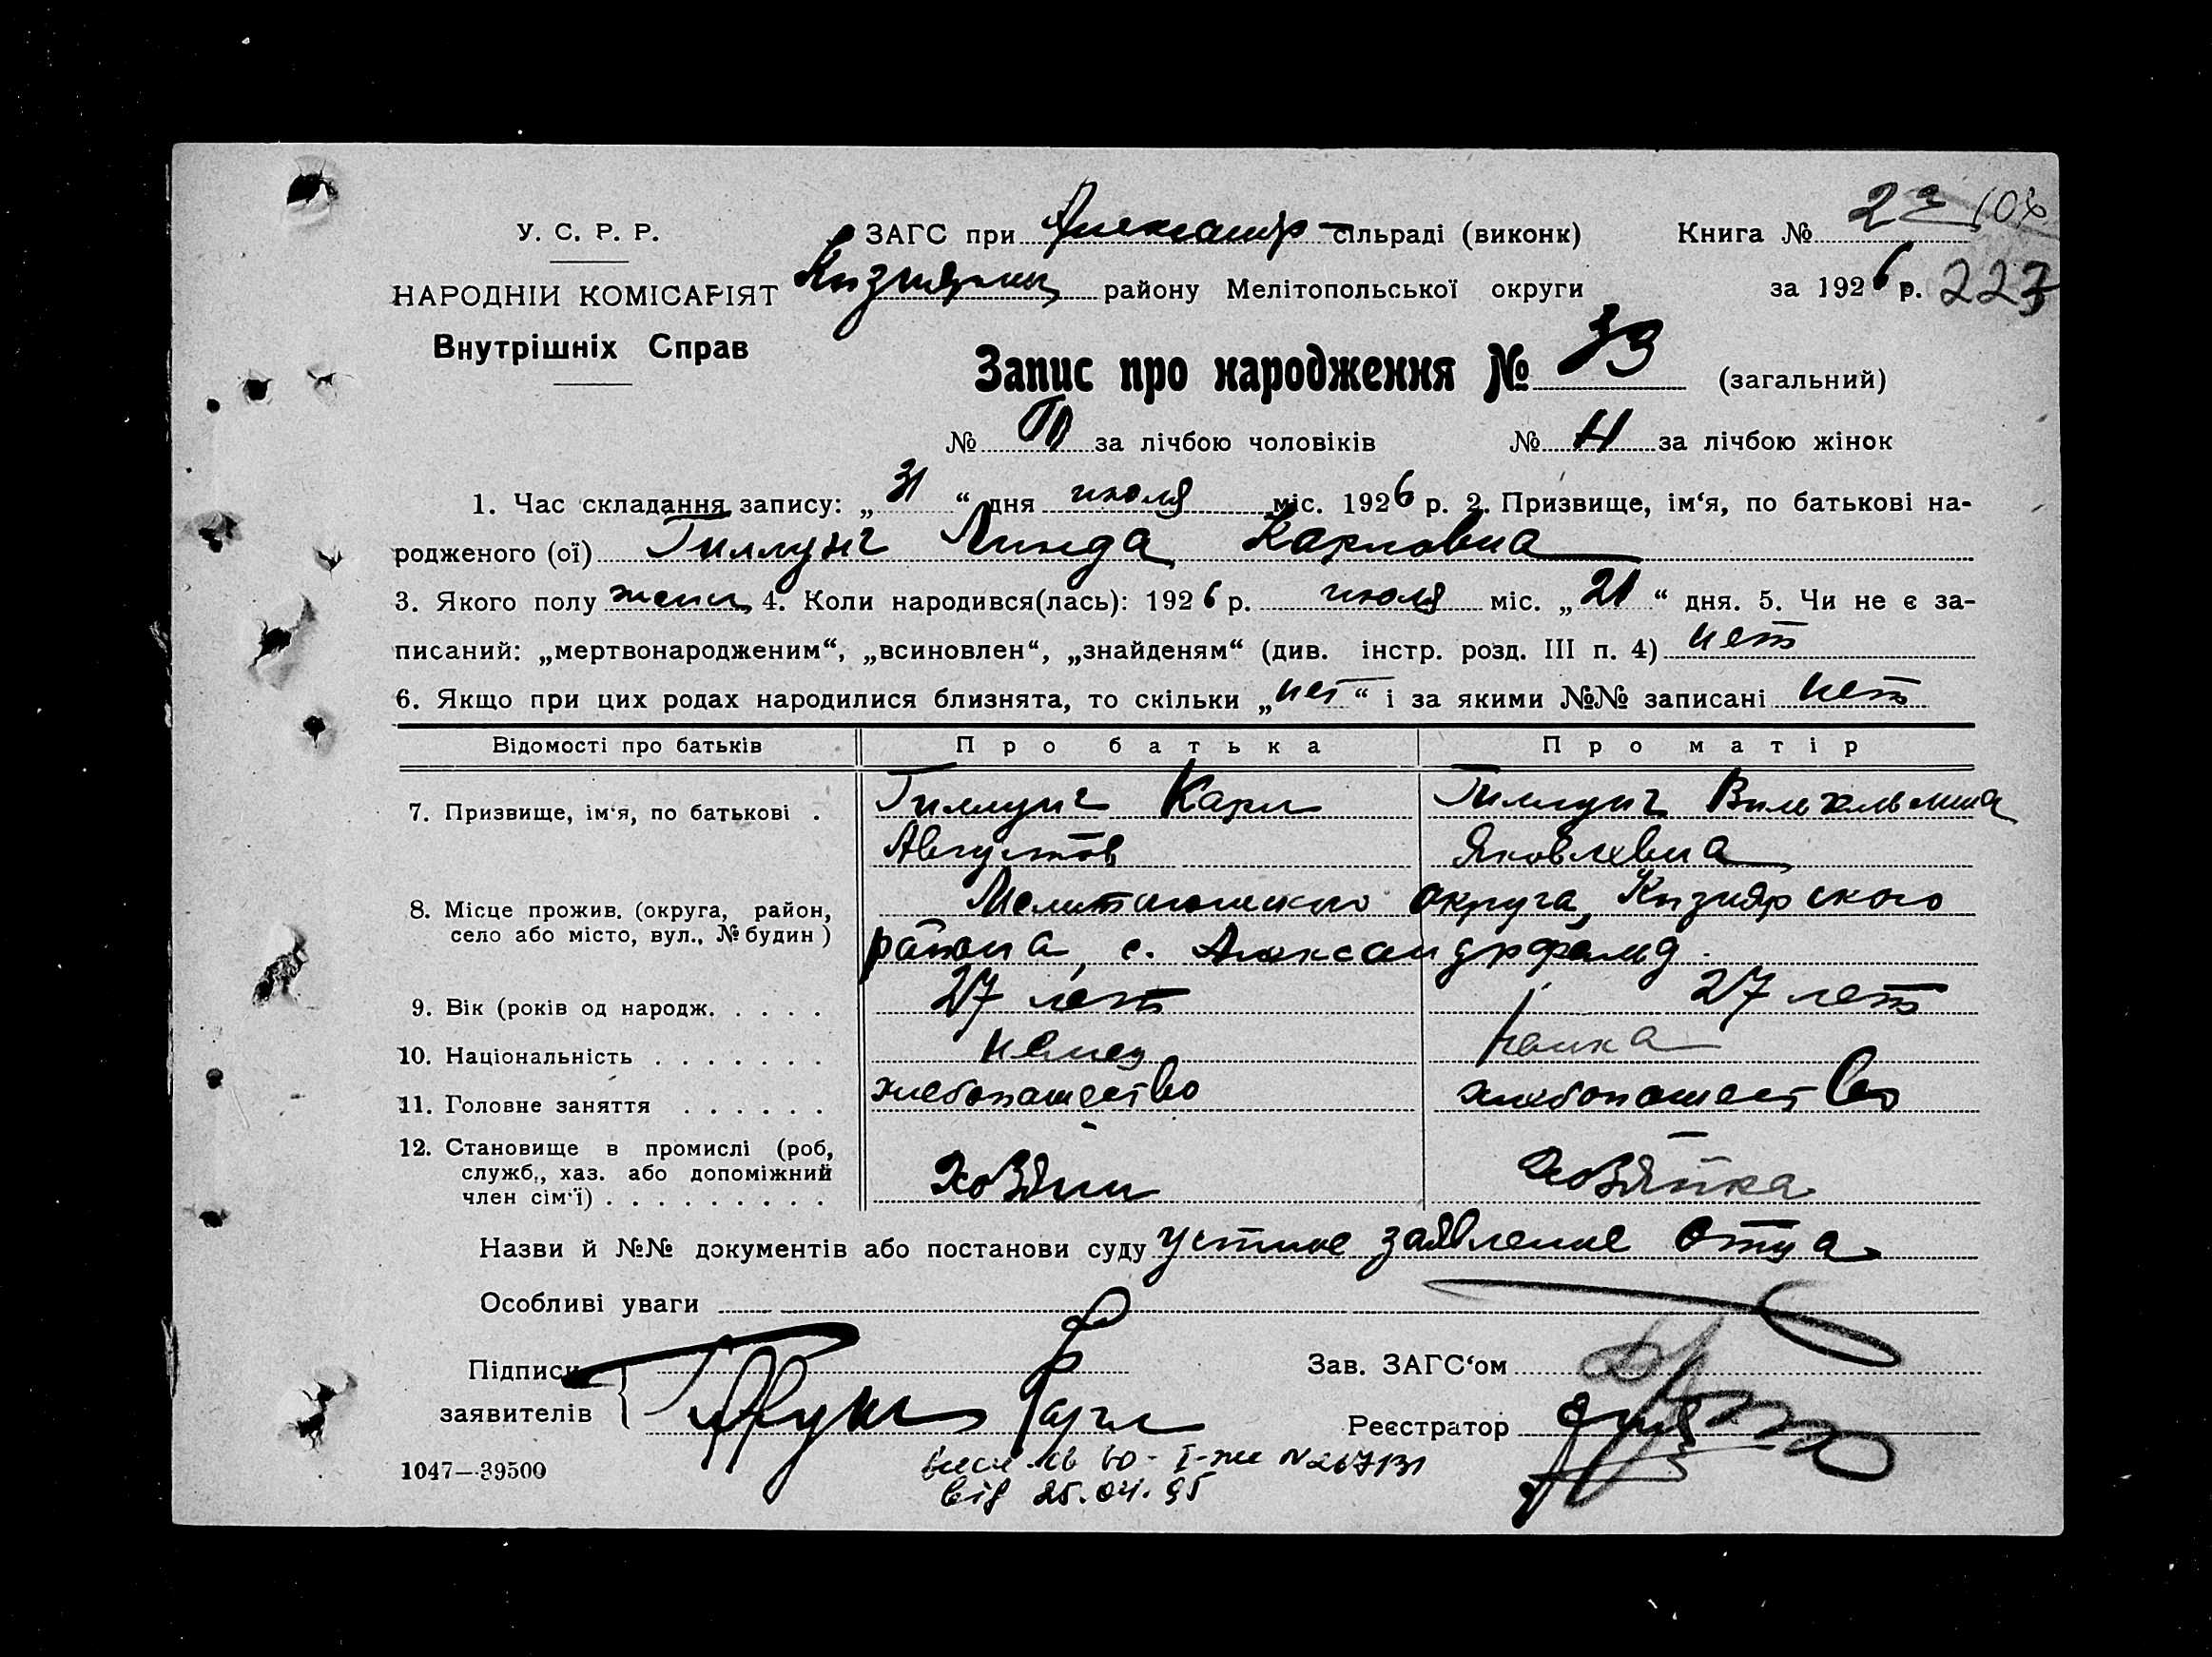 У. С. Р. Р.
НАРОДНІЙ КОМІСАРІЯТ
Внутрішніх Справ
ЗАГС при Александр сільраді (виконк)
району Мелітопольської округи
Книга № 2
за 1926 р. 223
Запис про народження № 33 (загальний)
№ за лічбою чоловіків № за лічбою жінок
1. Час складання запису: „31“ дня июля міс. 1926 р. 2. Призвище, ім‘я, по батькові на-
родженого (ої) Гиллунг Линда Карловна
3. Якого полу женск 4. Коли народився(лась): 1926 р. июля міс. „21“ дня. 5. Чи не є за-
писаний: „мертвонародженим“, „всиновлен“, „знайденям“ (див. інстр. розд. III п. 4) нет
6. Якщо при цих родах народилися близнята, то скільки „нет“ і за якими №№ записані нет
Відомості про батьків Про батька Про матір
7. Призвище, ім‘я, по батькові . Гиллунг Карл Гиллунг Вильгельмина
Августов Яковлевна
8. Місце прожив. (округа, район, Мелитопольского округа, Кизиярского
село або місто, вул., № будин) района, с. Александрфельд.
9. Вік (років од народж. . . . . 27 лет 27 лет
10. Національність . . . . . . . немец немка
11. Головне заняття . . . . . . хлебопашество хлебопашество
12. Становище в промислі (роб,
служб., хаз. або допоміжний
член сім‘ї) . . . . . . . . . Хозяин Хозяйка
Назви й №№ документів або постанови суду устное заявление отца
Особливі уваги
Підписи
заявителів
Зав. ЗАГС‘ом
Реєстратор
1047—39500
№ 267131
від 25.04.95